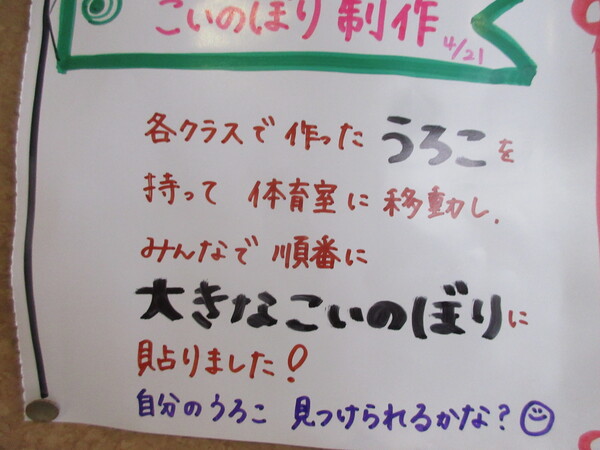 こいのぼり制作
4/21
各クラスで作ったうろこを
持って 体育室に移動し、
みんなで順番に
大きなこいのぼりに
貼りました!
自分のうろこ 見つけられるかな?